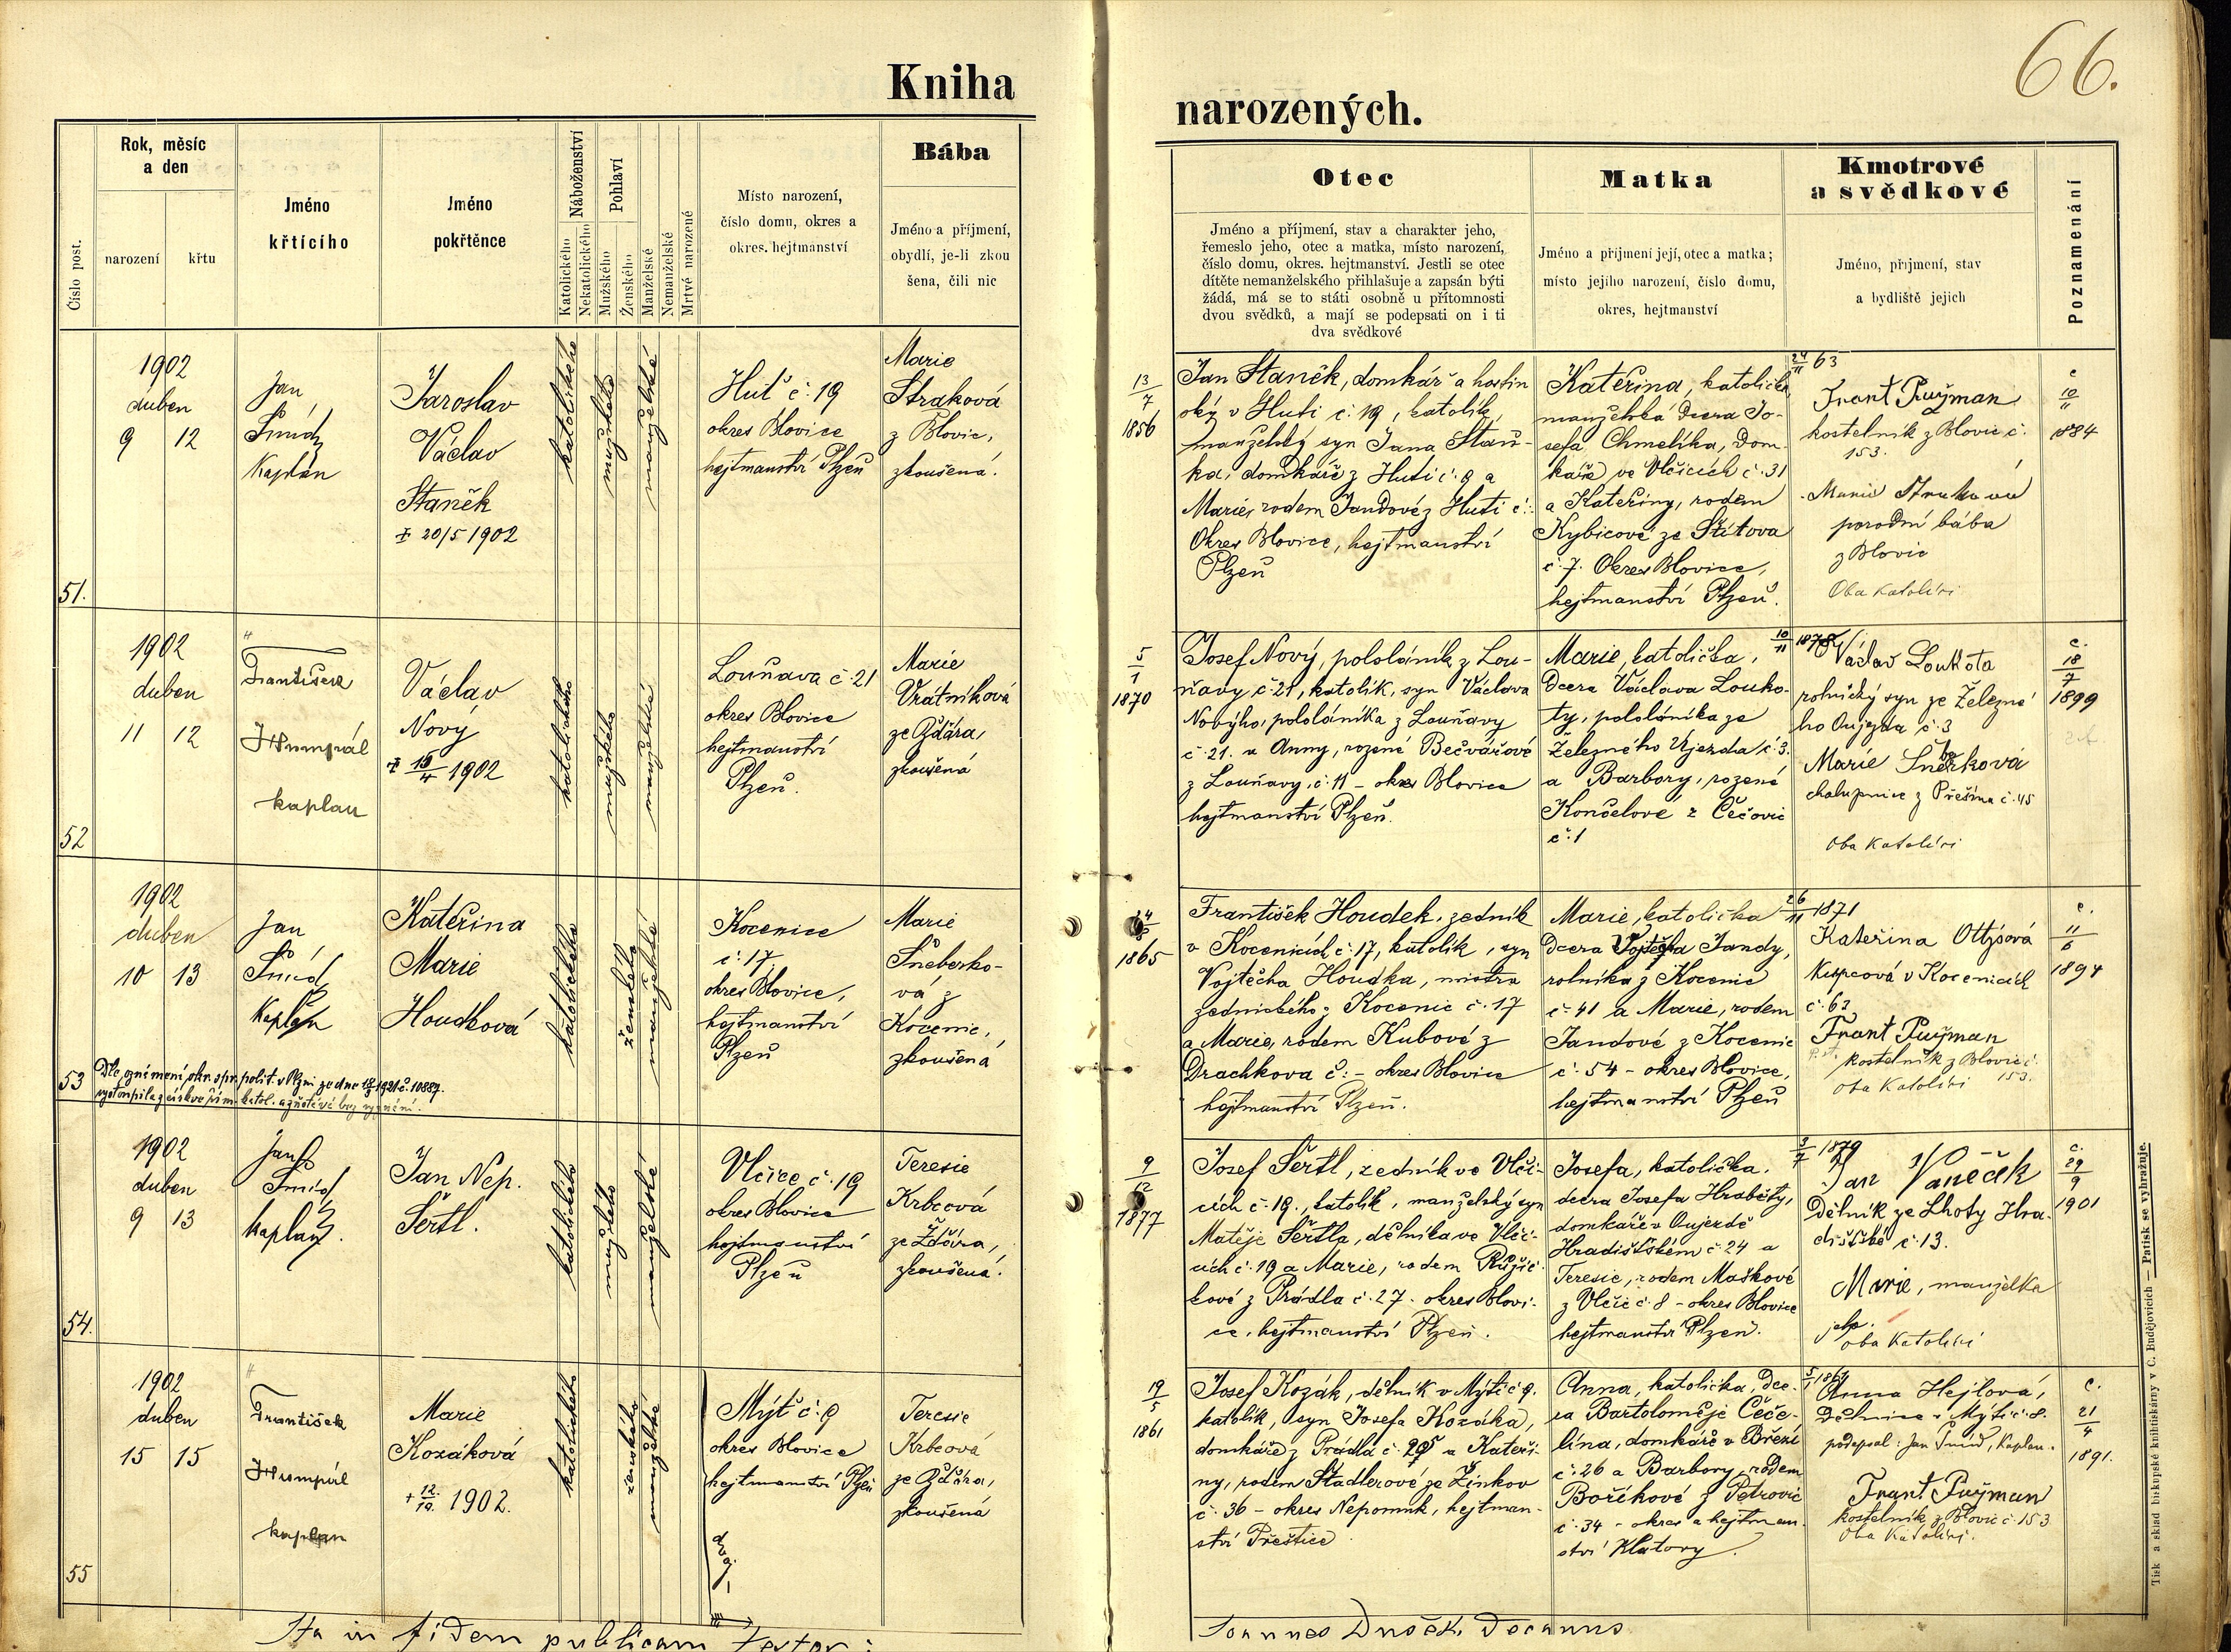 66.
Kniha
narozených.
Číslo post.
Rok, měsíc
a den
narození
křtu
Jméno
křtícího
Jméno
pokřtěnce
Náboženství
Katolického
Nekatolického
Pohlaví
Mužského
Ženského
Manželské
Nemanželské
Mrtvé narozené
Místo narození,
číslo domu, okres a
okres. hejtmanství
Bába
Jméno a příjmení,
obydlí, je-li zkou
šena, čili nic
Otec
Jméno a příjmení, stav a charakter jeho,
řemeslo jeho, otec a matka, místo narození,
číslo domu, okres. hejtmanství. Jestli se otec
dítěte nemanželského přihlašuje a zapsán býti
žádá, má se to státi osobně u přítomnosti
dvou svědků, a mají se podepsati on i ti
dva svědkové
Matka
Jméno a příjmení její, otec a matka;
místo jejího narození, číslo domu,
okres, hejtmanství
Kmotrové
a svědkové
Jméno, přijmení, stav
a bydliště jejich
Poznamenání
51.
1902
duben
9 12
Jan
Šmíd
Kaplan
Jaroslav
Václav
Staněk
20/5 1902
katolického
mužského
manželské
Huť č. 19
okres Blovice
hejtmanství Plzeň
Marie
Straková
z Blovic,
zkoušená.
13/7
1856
Jan Staněk, domkář a hostin
ský v Huti č. 19, katolík,
manželský syn Jana Staň-
ka, domkáře z Huti č. 9 a
Marie, rodem Jandové z Huti č:
Okres Blovice, hejtmanství
Plzeň
24/11 63
Kateřina, katolička,
manželská dcera Jo-
sefa Chmelíka, dom-
káře ve Vlčicích č. 31
a Kateřiny, rodem
Kybicové ze Štítova
č. 7. Okres Blovice,
hejtmanství Plzeň.
Frant Pužman
kostelník z Blovic č.
153.
Marie Straková
porodní bába
z Blovic
Oba katolíci
c
10/11
1884
52
1902
duben
11 12
František
Hrumpál
kaplan
Václav
Nový
1902
katolického
mužského
manželské
Louňava č. 21
okres Blovice
hejtmanství
Plzeň.
Marie
Vrátníková
ze Žďára,
zkoušená
5/1
1870
Josef Nový, pololáník z Lou-
ňavy č. 21, katolík, syn Václava
Nového, pololáníka z Louňavy
č. 21. a Anny, rozené Bečvářové
z Louňavy, č. 11 - okres Blovice
hejtmanství Plzeň.
10/11 1878
Marie, katolička,
Dcera Václava Louko-
ty, pololáníka ze
Železného Újezda č. 3.
a Barbory, rozené
Končelové z Čečovic
č. 1
Václav Loukota
rolnický syn ze Železné
ho Oujezda č. 3
Marie
chalupnice z Přešína č. 45
oba katolíci
c.
18/7
1899
53
1902
duben
10 13
Jan
Šmíd
kaplan
Kateřina
Marie
Houdková
Dle oznámení okr. spr. polit. v Plzni ze dne 1921 č. 10887.
vystoupila z církve řím. katol. a zůstává bez vyznání.
katolického
ženského
manželské
Kocenice
č. 17
okres Blovice,
hejtmanství
Plzeň
Marie
Šneberko-
vá z
Kocenic,
zkoušená
1865
František Houdek, zedník
v Kocenicích č. 17, katolík, syn
Vojtěcha Houdka, mistra
zednického z Kocenic č. 17
a Marie, rodem Kubové z
Drachkova č: - okres Blovice
hejtmanství Plzeň.
26/11 1871
Marie, katolička
Dcera Vojtěcha Jandy,
rolníka z Kocenic
č. 41 a Marie, rodem
Jandové z Kocenic
č. 54 - okres Blovice,
hejtmanství Plzeň
Kateřina Ottisová
Kupcová v Kocenicích
č. 63
Frant Pužman
kostelník z Blovic č.
153.
oba katolíci
c.
11/6
1894
54.
1902
duben
9 13
Jan
Šmíd
kaplan.
Jan Nep.
Šertl.
katolického
mužského
manželské
Vlčice č. 19
okres Blovice
hejtmanství
Plzeň
Teresie
Krbcová
ze Žďára,
zkoušená.
9/12
1877
Josef Šertl, zedník ve Vlči-
cích č. 19., katolík, manželský syn
Matěje Šertla, dělníka ve Vlči-
cích č. 19 a Marie, rodem Růžič-
kové z Prádla č. 27 - okres Blovi-
ce, hejtmanství Plzeň.
3/7 1879
Josefa, katolička,
dcera Josefa Hraběty,
domkáře v Oujezdě
Hradišťském č. 24 a
Teresie, rodem Maškové
z Vlčic č. 8 - okres Blovice
hejtmanství Plzeň.
Jan Vaněček
Dělník ze Lhoty Hra-
dišťské č. 13.
Marie, manželka
jeho.
oba katolíci
c.
29/9
1901
55
1902
duben
15 15
František
Hrumpál
kaplan
Marie
Kozáková
+ 1902.
katolického
ženského
manželské
Mýť č. 9
okres Blovice
hejtmanství Plzeň
Teresie
Krbcová
ze Žďára,
zkoušená
19/5
1861
Josef Kozák, dělník v Mýti č. 9.
katolík, syn Josefa Kozáka,
domkáře z Prádla č. a Kateři-
ny, rodem Stadlerové ze Žinkov
č. 36 - okres Nepomuk, hejtman-
ství Přeštice
Anna, katolička, Dce-
ra Bartoloměje Čeče-
lína, domkáře v Březí
č. 26 a Barbory, rodem
Boříkové z Petrovic
č. 34 - okres a hejtman-
ství Klatovy.
Anna Hejlová,
Dělnice v Mýti č. 8.
podepsal: Jan Šmíd, Kaplan.
Frant. Pužman
kostelník z Blovic č. 153
Oba Katolíci.
c.
21/4
1891.
Ita in fidem publicam testor:
Joannes Dušek, Decanus
Tisk a sklad biskupské knihtiskárny v Č. Budějovicích — Patisk se vyhražuje.